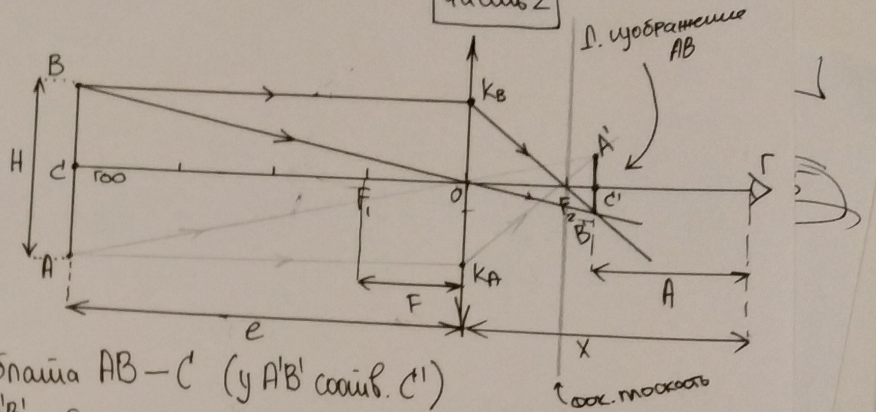 Часть 2
Д. изображение
AB
B
H
C
ГОО
A
F₁
F
O
K_B
K_A
F₂
A'
C'
B'
Г
A
e
X
AB – C (у A'B' соотв. C')
фок. плоскость